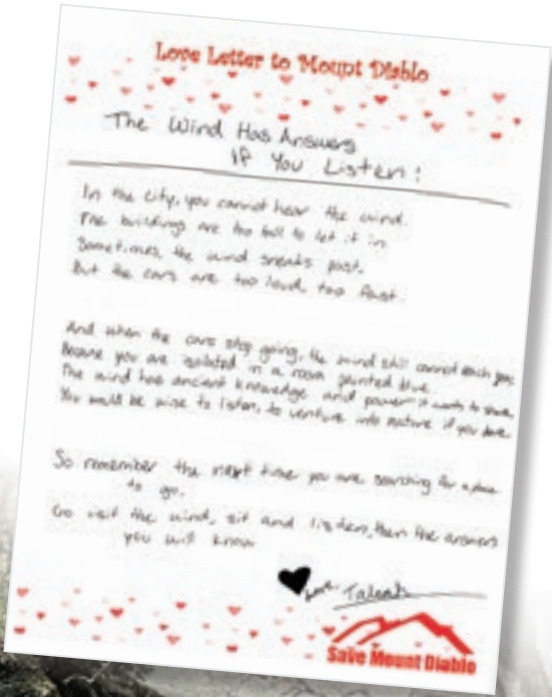 Love Letter to Mount Diablo
The Wind Has Answers
If You Listen!
In the city, you cannot hear the wind.
The buildings are too tall to let it in
Sometimes, the wind sneaks past.
But the cars are too loud, too fast.
And when the cars stop going, the wind still cannot reach you,
Because you are isolated in a room painted blue.
The wind has ancient knowledge and power it wants to share,
You would be wise to listen, to venture into nature if you dare.
So remember the next time you are searching for a place
to go.
Go visit the wind, sit and listen, then the answers
you will know
Love
Save Mount Diablo